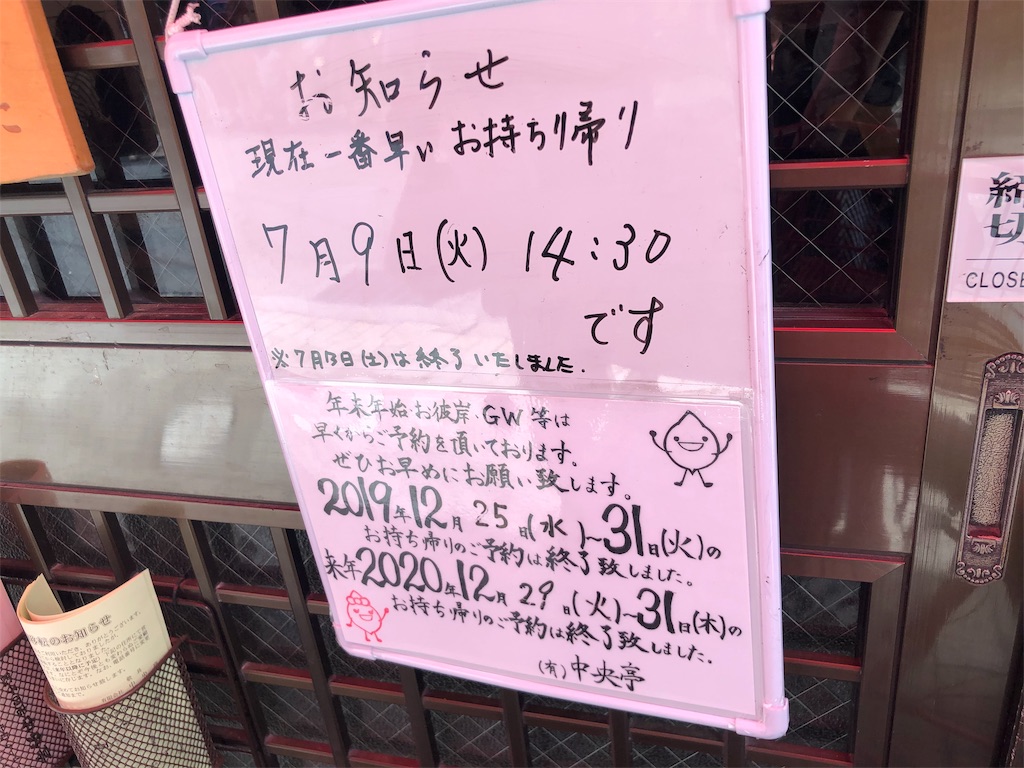 お知らせ
現在一番早いお持ち帰り
7月9日(火) 14:30
です
※7月13日(土)は終了いたしました.
年末年始・お彼岸・GW等は
早くからご予約を頂いております。
ぜひお早めにお願い致します。
2019年12月25日(水)~31日(火)の
お持ち帰りのご予約は終了致しました。
来年2020年12月29日(火)~31日(木)の
お持ち帰りのご予約は終了致しました。
(有)中央亭
締切
CLOSE
移転のお知らせ